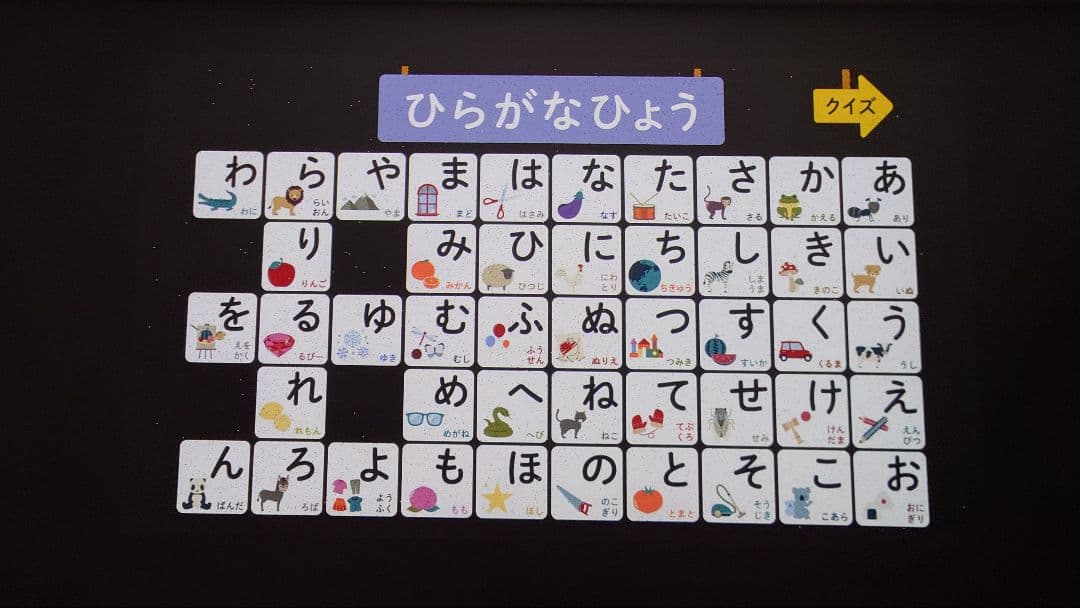 ひらがなひょう
クイズ
あ
あり
い
いぬ
う
うし
え
えん
ぴつ
お
おに
ぎり
か
かえる
き
きのこ
く
くるま
け
けん
だま
こ
こあら
さ
さる
し
しま
うま
す
すいか
せ
せみ
そ
そう
じき
た
たいこ
ち
ちきゅう
つ
つみき
て
てぶ
くろ
と
とまと
な
なす
に
にわ
とり
ぬ
ぬりえ
ね
ねこ
の
のこ
ぎり
は
はさみ
ひ
ひつじ
ふ
ふう
せん
へ
へび
ほ
ほし
ま
まど
み
みかん
む
むし
め
めがね
も
もも
や
やま
ゆ
ゆき
よ
よう
ふく
ら
らい
おん
り
りんご
る
るびー
れ
れもん
ろ
ろば
わ
わに
を
えを
かく
ん
ぱんだ